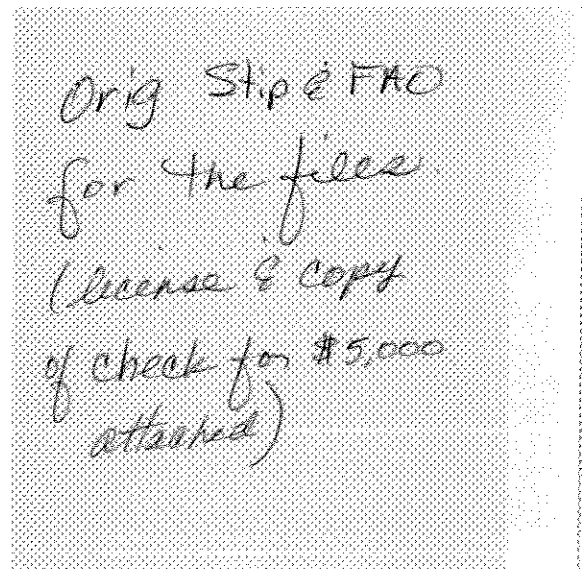 Orig Stip & FAO
for the files.
(license & copy
of check for $5,000
attached)